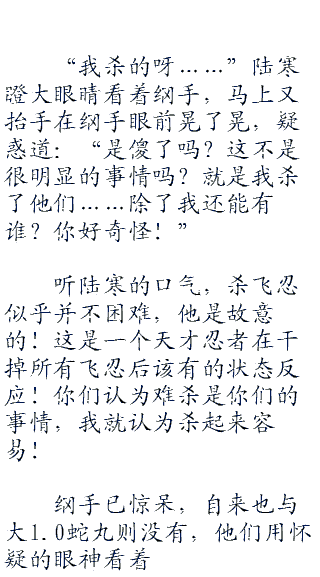 “我杀的呀……”陆寒
瞪大眼睛看着纲手，马上又
抬手在纲手眼前晃了晃，疑
惑道：“是傻了吗？这不是
很明显的事情吗？就是我杀
了他们……除了我还能有
谁？你好奇怪！”
听陆寒的口气，杀飞忍
似乎并不困难，他是故意
的！这是一个天才忍者在干
掉所有飞忍后该有的状态反
应！你们认为难杀是你们的
事情，我就认为杀起来容
易！
纲手已惊呆，自来也与
大1.0蛇丸则没有，他们用怀
疑的眼神看着